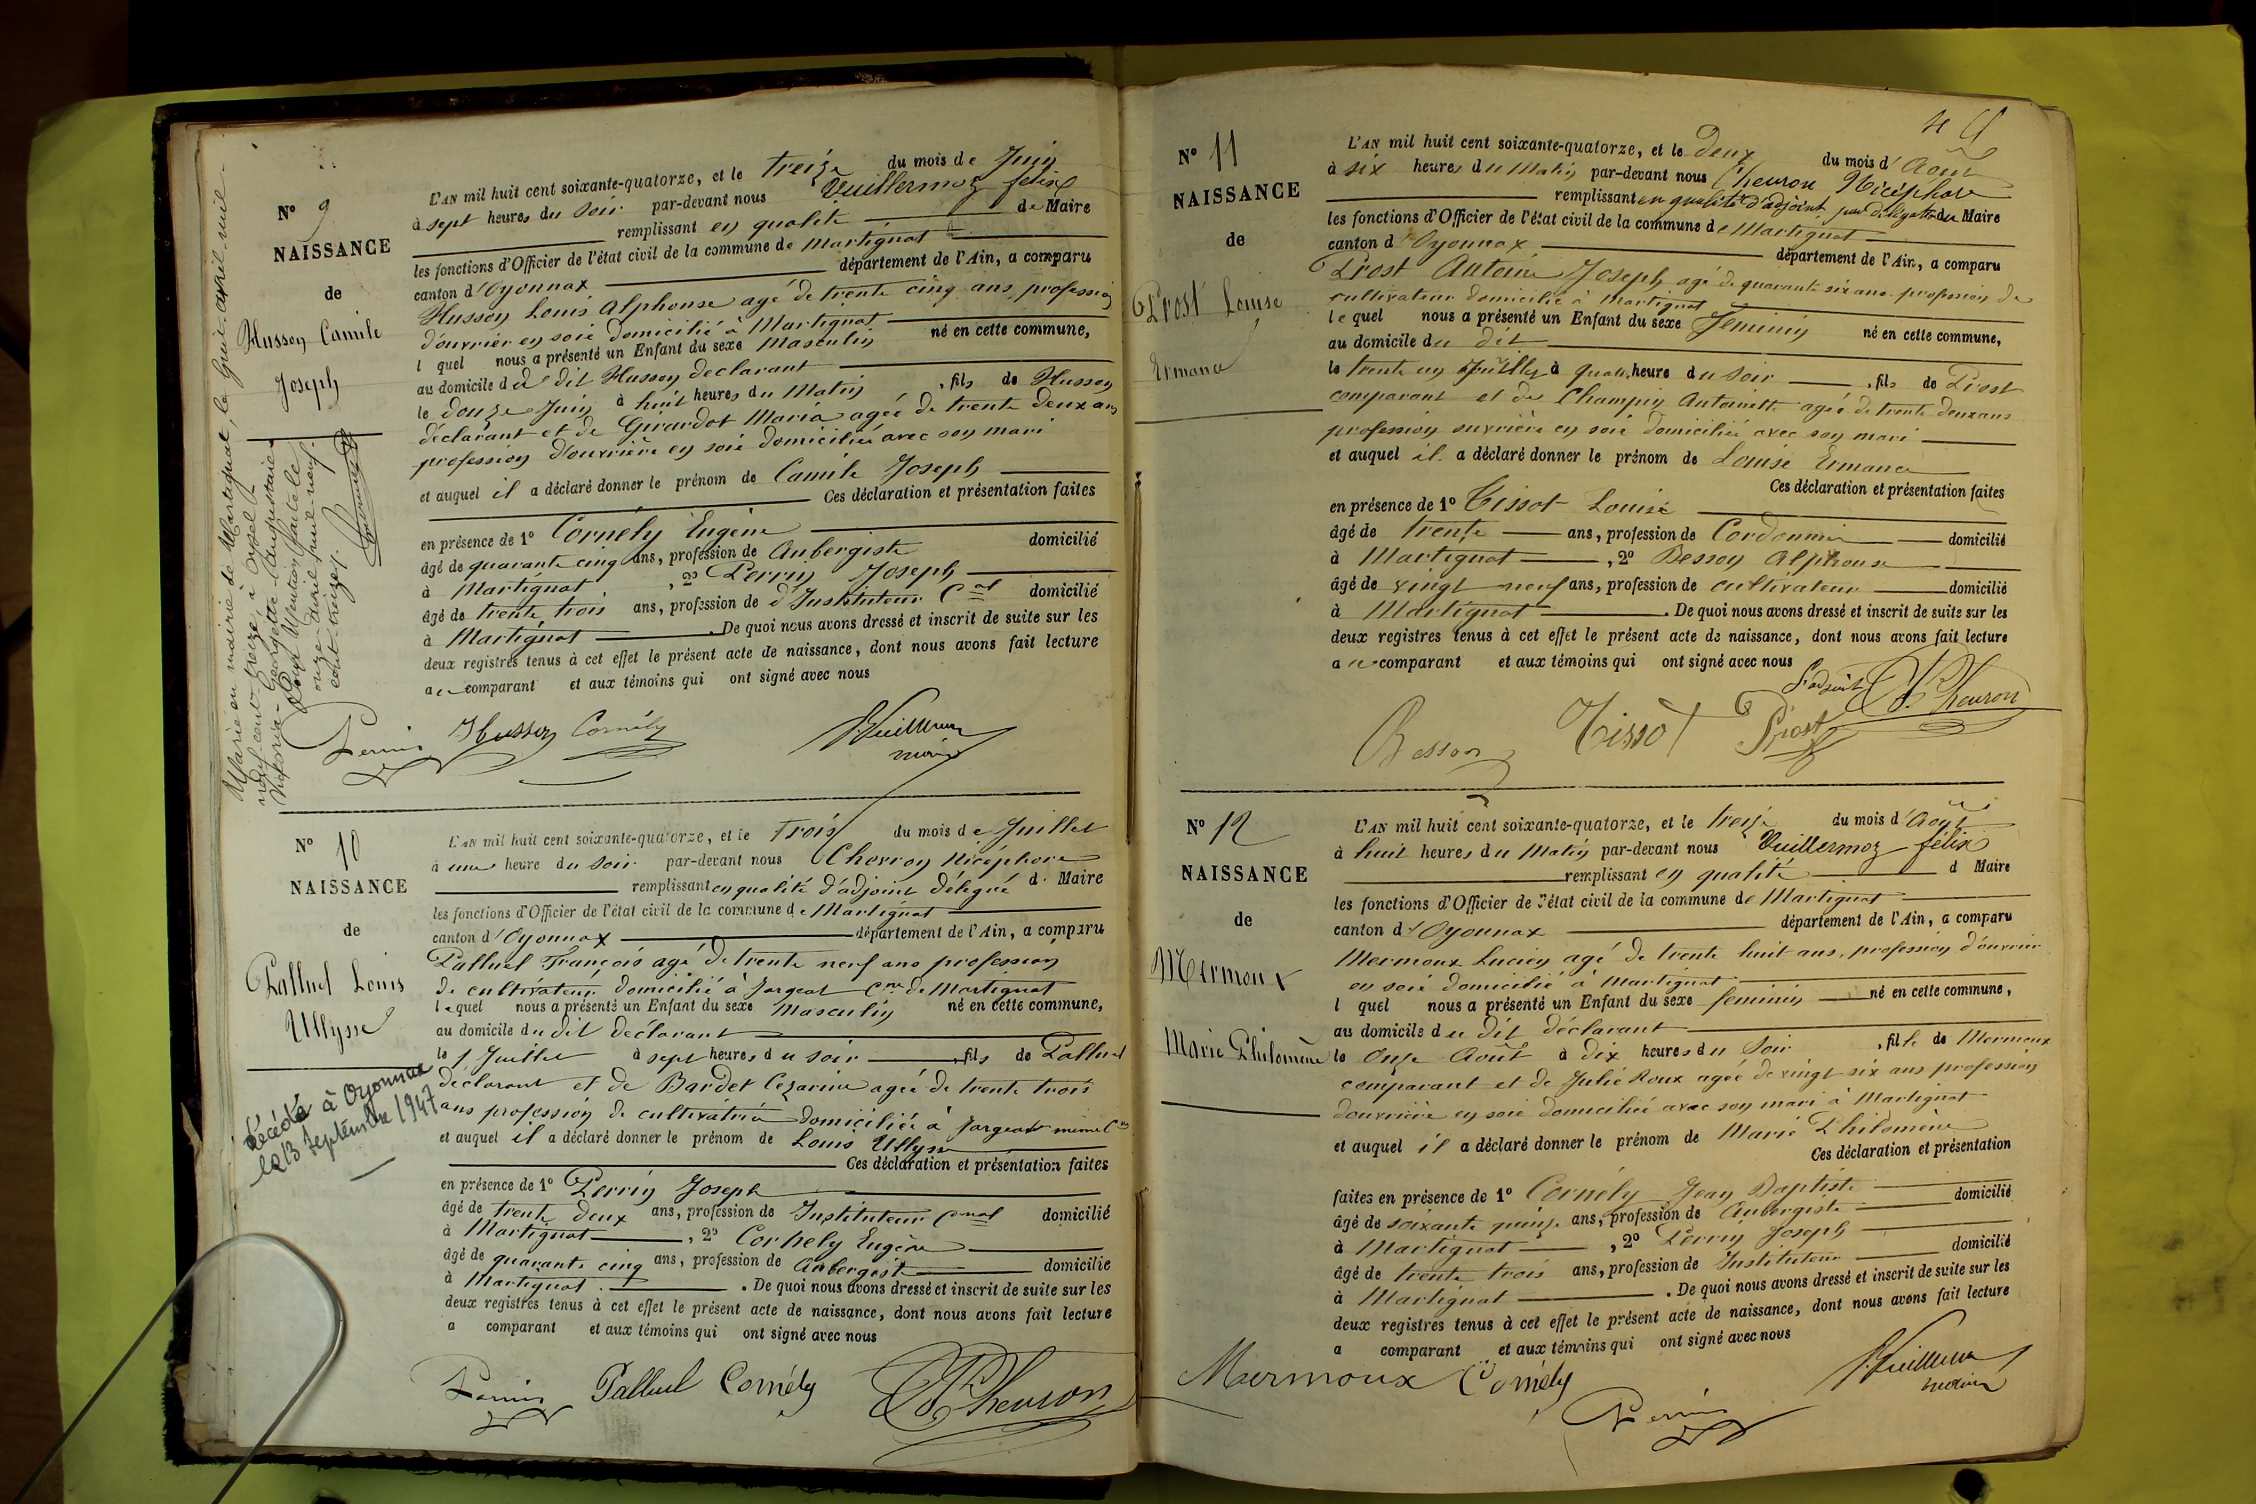 N° 9
NAISSANCE
de
Husson Camile
Joseph
Marié en mairie de Martignat, le
neuf cent treize, à
Victoria-Georgette
onze avril mil neuf
cent treize.
L'AN mil huit cent soixante-quatorze, et le treize du mois de Juin
à sept heures du Soir par-devant nous Vuillermoz félix
remplissant en qualité de Maire
les fonctions d'Officier de l'état civil de la commune de Martignat
canton d'Oyonnax département de l'Ain, a comparu
Husson Louis Alphonse agé de trente cinq ans, profession
d'ouvrier en soie domicilié à Martignat
l quel nous a présenté un Enfant du sexe Masculin né en cette commune,
au domicile du dit Husson declarant
le douze Juin à huit heures du Matin, fils de Husson
déclarant et de Girardot Maria agée de trente deux ans
profession d'ouvrière en soie domiciliée avec son mari
et auquel il a déclaré donner le prénom de Camile Joseph
Ces déclaration et présentation faites
en présence de 1° Cornély Eugène
âgé de quarante cinq ans, profession de Aubergiste domicilié
à Martignat, 2° Perrin Joseph
âgé de trente trois ans, profession de d'Instituteur Cnal domicilié
à Martignat. De quoi nous avons dressé et inscrit de suite sur les
deux registres tenus à cet effet le présent acte de naissance, dont nous avons fait lecture
au comparant et aux témoins qui ont signé avec nous
Perrin Husson Cornély Vuillermoz
maire
N° 10
NAISSANCE
de
Palluel Louis
Ullysse
Décédé à Oyonnax
le 13 septembre 1947
L'AN mil huit cent soixante-quatorze, et le trois du mois de Juillet
à une heure du soir par-devant nous Chevron Nicéphore
remplissant en qualité d'adjoint délégué d. Maire
les fonctions d'Officier de l'état civil de la commune de Martignat
canton d'Oyonnax département de l'Ain, a comparu
Palluel François agé de trente neuf ans profession
de cultivateur domicilié à Jargeat Cne de Martignat
lequel nous a présenté un Enfant du sexe Masculin né en cette commune,
au domicile du dit déclarant
le 1 Juillet à sept heures du soir, fils de Palluel
déclarant et de Bardet Cezarine agée de trente trois
ans profession de cultivatrice domiciliée à Jargeat même Cne
et auquel il a déclaré donner le prénom de Louis Ullysse
Ces déclaration et présentation faites
en présence de 1° Perrin Joseph
âgé de trente deux ans, profession de Instituteur Cnal domicilié
à Martignat, 2° Cornely Eugène
âgé de quarante cinq ans, profession de Aubergiste domicilié
à Martignat. De quoi nous avons dressé et inscrit de suite sur les
deux registres tenus à cet effet le présent acte de naissance, dont nous avons fait lecture
a comparant et aux témoins qui ont signé avec nous
Perrin Palluel Cornély Chevron
N° 11
NAISSANCE
de
Prost Louise
Ermance
L'AN mil huit cent soixante-quatorze, et le deux du mois d'Août
à six heures du Matin par-devant nous Chevron Nicéphore
remplissant en qualité d'adjoint par délégation du Maire
les fonctions d'Officier de l'état civil de la commune de Martignat
canton d'Oyonnax département de l'Ain, a comparu
Prost Antoine Joseph agé de quarante six ans profession de
cultivateur domicilié à Martignat
lequel nous a présenté un Enfant du sexe féminin né en cette commune,
au domicile du dit
le trente un Juillet à quatre heure du soir, fils de Prost
comparant et de Champin Antoinette agée de trente deux ans
profession ouvrière en soie domiciliée avec son mari
et auquel il a déclaré donner le prénom de Louise Ermance
Ces déclaration et présentation faites
en présence de 1° Tissot Louise
âgé de trente ans, profession de Cordonnier domicilié
à Martignat, 2° Besson Alphonse
âgé de vingt neuf ans, profession de cultivateur domicilié
à Martignat. De quoi nous avons dressé et inscrit de suite sur les
deux registres tenus à cet effet le présent acte de naissance, dont nous avons fait lecture
au comparant et aux témoins qui ont signé avec nous
L'adjoint
Besson Tissot Prost Chevron
N° 12
NAISSANCE
de
Mermoux
Marie Philomène
L'AN mil huit cent soixante-quatorze, et le treize du mois d'Août
à huit heures du Matin par-devant nous Vuillermoz félix
remplissant en qualité d Maire
les fonctions d'Officier de l'état civil de la commune de Martignat
canton d'Oyonnax département de l'Ain, a comparu
Mermoux Lucien agé de trente huit ans, profession d'ouvrier
en soie domicilié à Martignat
l quel nous a présenté un Enfant du sexe feminin né en cette commune,
au domicile du dit déclarant
le Onze Août à dix heures du Soir, fille de Mermoux
comparant et de Julie Roux agée de vingt six ans profession
d'ouvrière en soie domiciliée avec son mari à Martignat
et auquel il a déclaré donner le prénom de Marie Philomène
Ces déclaration et présentation
faites en présence de 1° Cornély Jean Baptiste
âgé de soixante quinze ans, profession de Aubergiste domicilié
à Martignat, 2° Perrin Joseph
âgé de trente trois ans, profession de Instituteur domicilié
à Martignat. De quoi nous avons dressé et inscrit de suite sur les
deux registres tenus à cet effet le présent acte de naissance, dont nous avons fait lecture
a comparant et aux témoins qui ont signé avec nous
Mermoux Cornély Perrin Vuillermoz
maire